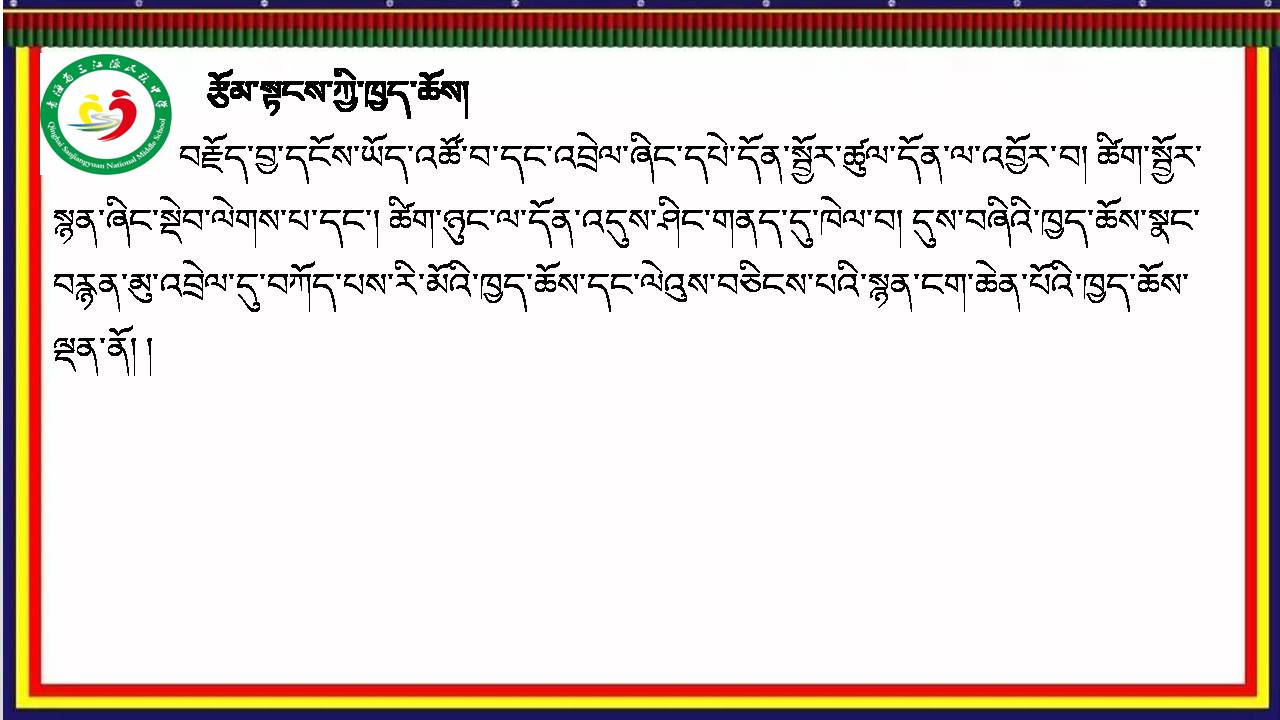 青海省三江源民族中学
Qinghai Sanjiangyuan National Middle School
རྩོམ་སྟངས་ཀྱི་ཁྱད་ཆོས།
བརྗོད་བྱ་དངོས་ཡོད་འཚོ་བ་དང་འབྲེལ་ཞིང་དཔེ་དོན་སྦྱོར་ཚུལ་དོན་ལ་འབྱོར་བ། ཚིག་སྦྱོར་
སྙན་ཞིང་སྡེབ་ལེགས་པ་དང་། ཚིག་ཉུང་ལ་དོན་འདུས་ཤིང་གནད་དུ་ཁེལ་བ། དུས་བཞིའི་ཁྱད་ཆོས་སྣང་
བརྙན་མུ་འབྲེལ་དུ་བཀོད་པས་རི་མོའི་ཁྱད་ཆོས་དང་ལེའུས་བཅིངས་པའི་སྙན་ངག་ཆེན་པོའི་ཁྱད་ཆོས་
ལྡན་ནོ། །